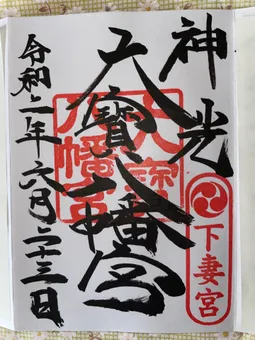 神光
下妻宮
大寶八幡宮
八幡宮
令和二年六月二十三日